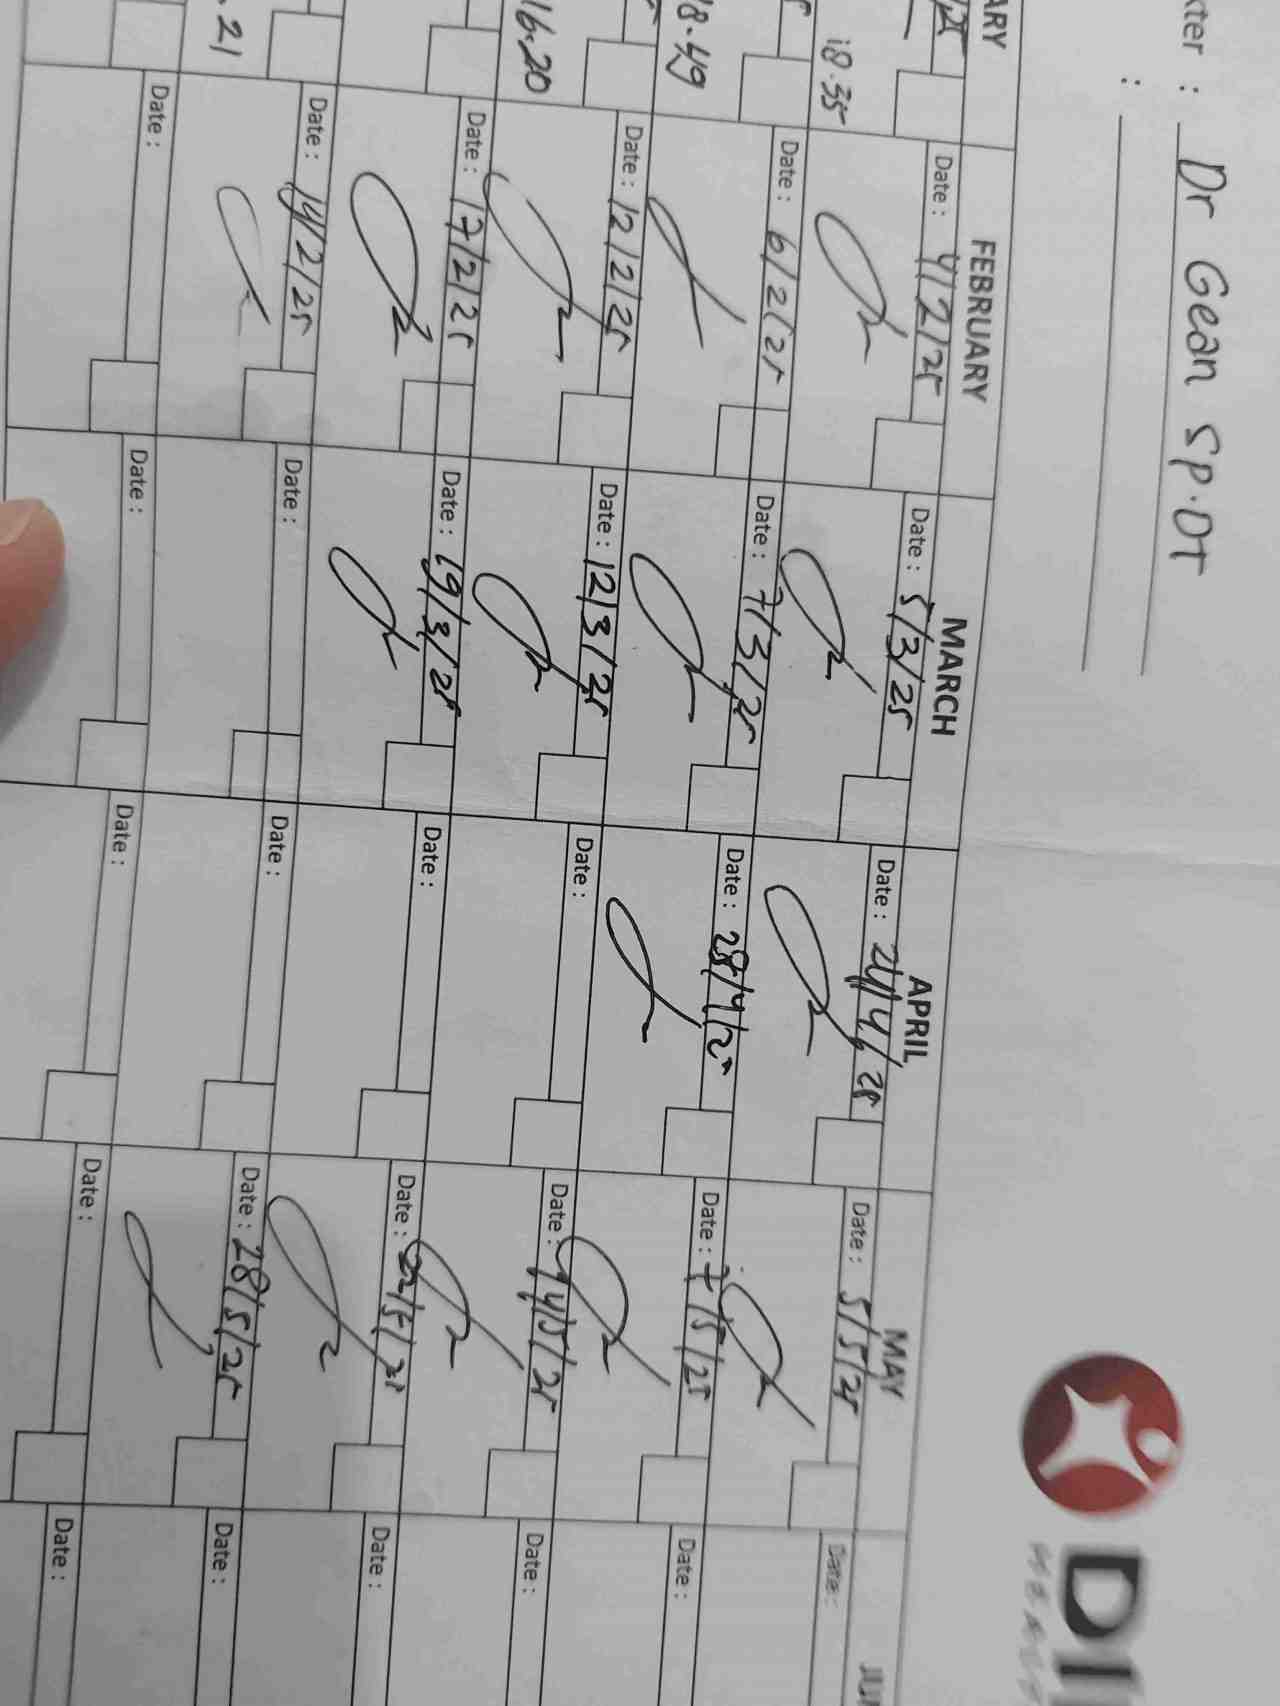 kter : Dr Gean Sp.OT
:
DI
ARY FEBRUARY MARCH APRIL MAY JU
Date : 4/2/25 Date : 5/3/25 Date : 24/4/25 Date : 5/5/25 Date :
18.35
Date : 6/2/25 Date : 7/3/25 Date : 28/4/25 Date : 7/5/25 Date :
18.49
Date : 12/2/25 Date : 12/3/25 Date : Date : 14/5/25 Date :
16.20
Date : 17/2/25 Date : 19/3/25 Date : Date : 22/5/25 Date :
Date : 19/2/25 Date : Date : Date : 28/5/25 Date :
.21
Date : Date : Date : Date : Date :